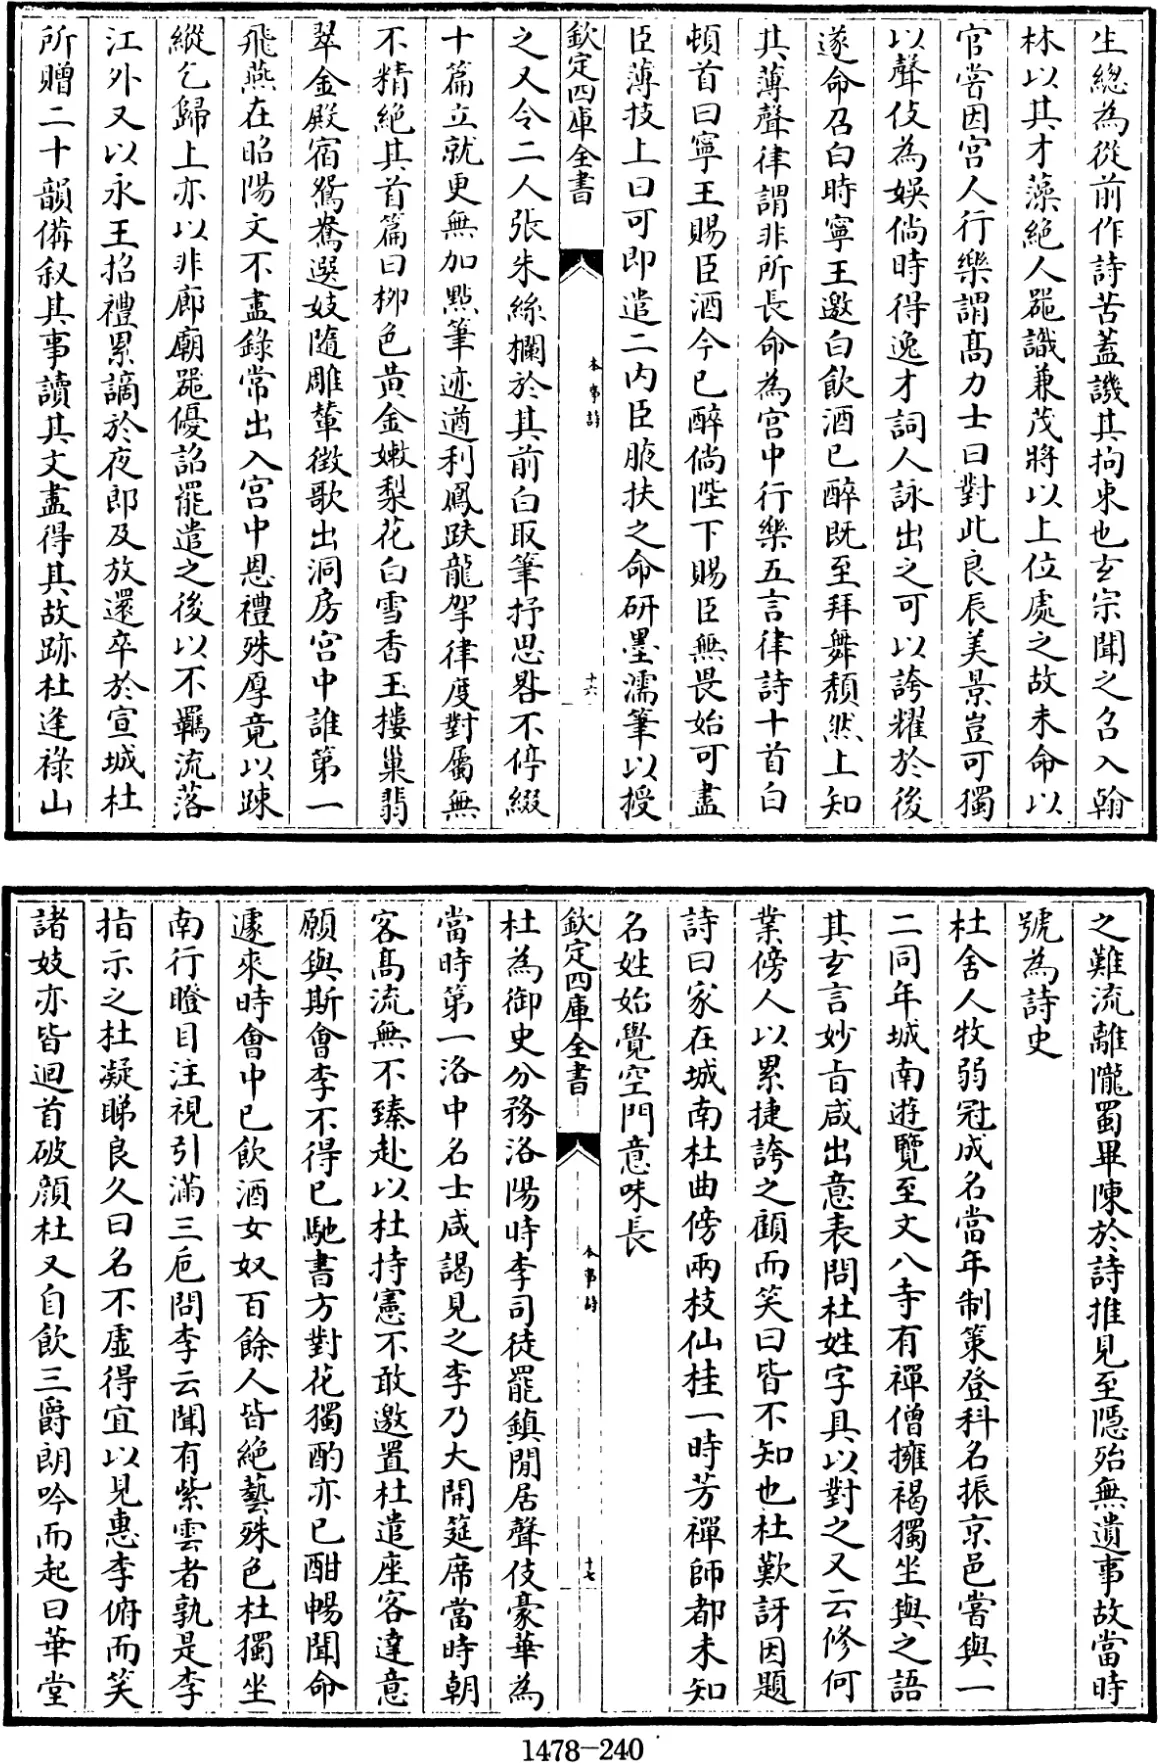 生總為從前作詩苦蓋譏其拘束也玄宗聞之召入翰
林以其才藻絶人器識兼茂將以上位處之故未命以
官嘗因宮人行樂謂髙力士曰對此良辰美景豈可獨
以聲伎為娱倘時得逸才詞人詠出之可以誇耀於後
遂命召白時寧王邀白飲酒已醉既至拜舞頽然上知
其薄聲律謂非所長命為宮中行樂五言律詩十首白
頓首曰寧王賜臣酒今已醉倘陛下賜臣無畏始可盡
臣薄技上曰可即遣二内臣腋扶之命研墨濡筆以授
欽定四庫全書
本事詩
十六
之又令二人張朱絲欄於其前白取筆抒思畧不停綴
十篇立就更無加點筆迹遒利鳳跌龍拏律度對屬無
不精絶其首篇曰栁色黄金嫩梨花白雪香玉樓巢翡
翠金殿宿鴛鴦選妓隨雕輦徴歌出洞房宮中誰第一
飛燕在昭陽文不盡錄常出入宮中恩禮殊厚竟以踈
縱乞歸上亦以非廊廟器優詔罷遣之後以不羈流落
江外又以永王招禮累謫於夜郎及放還卒於宣城杜
所贈二十韻備叙其事讀其文盡得其故跡杜逢祿山
之難流離隴蜀畢陳於詩推見至隱殆無遺事故當時
號為詩史
杜舍人牧弱冠成名當年制策登科名振京邑嘗與一
二同年城南遊覽至文八寺有禪僧擁褐獨坐與之語
其玄言妙㫖咸出意表問杜姓字具以對之又云修何
業傍人以累捷誇之顧而笑曰皆不知也杜歎訝因題
詩曰家在城南杜曲傍兩枝仙桂一時芳禪師都未知
名姓始覺空門意味長
欽定四庫全書
本事詩
十七
杜為御史分務洛陽時李司徒罷鎮閒居聲伎豪華為
當時第一洛中名士咸謁見之李乃大開筵席當時朝
客髙流無不臻赴以杜持憲不敢邀置杜遣座客達意
願與斯會李不得已馳書方對花獨酌亦已酣暢聞命
遽來時會中已飲酒女奴百餘人皆絶藝殊色杜獨坐
南行瞪目注視引滿三巵問李云聞有紫雲者孰是李
指示之杜凝睇良久曰名不虛得宜以見惠李俯而笑
諸妓亦皆迴首破顔杜又自飲三爵朗吟而起曰華堂
1478-240